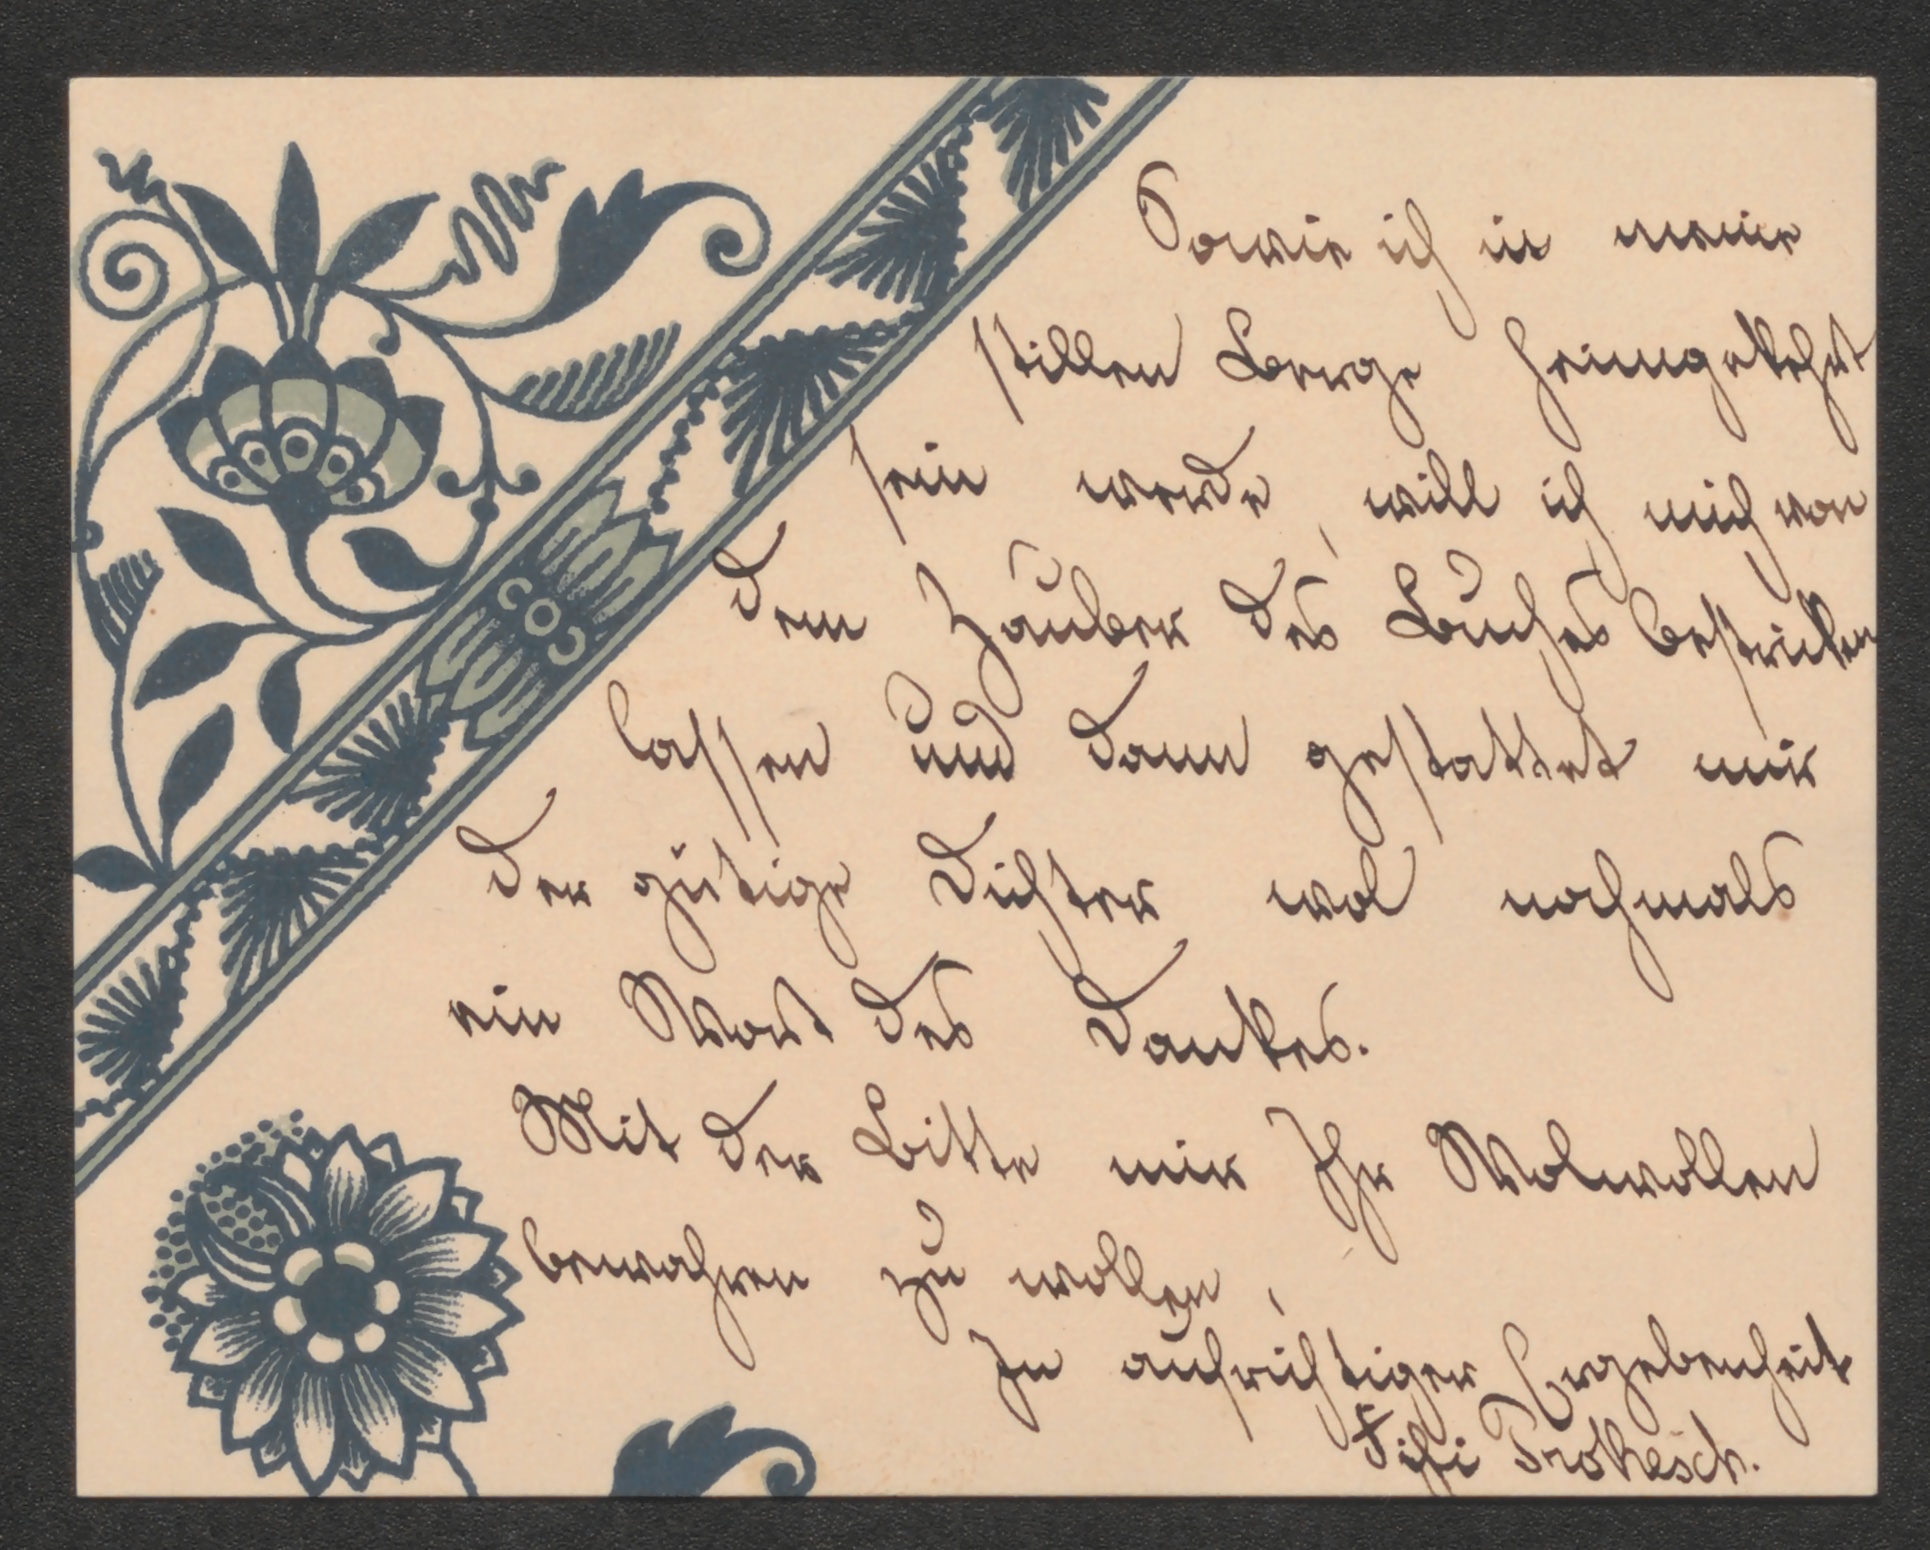 Sowie ich in meine
stillen Berge heimgekehrt
sein werde, will ich mich von
dem Zauber des Buches bestricken
lassen und dann gestattet mir
der gütige Dichter wol nochmals
ein Wort des Dankes.
Mit der Bitte mir Ihr Wolwollen
bewahren zu wollen,
In aufrichtiger Ergebenheit
Prokesch.